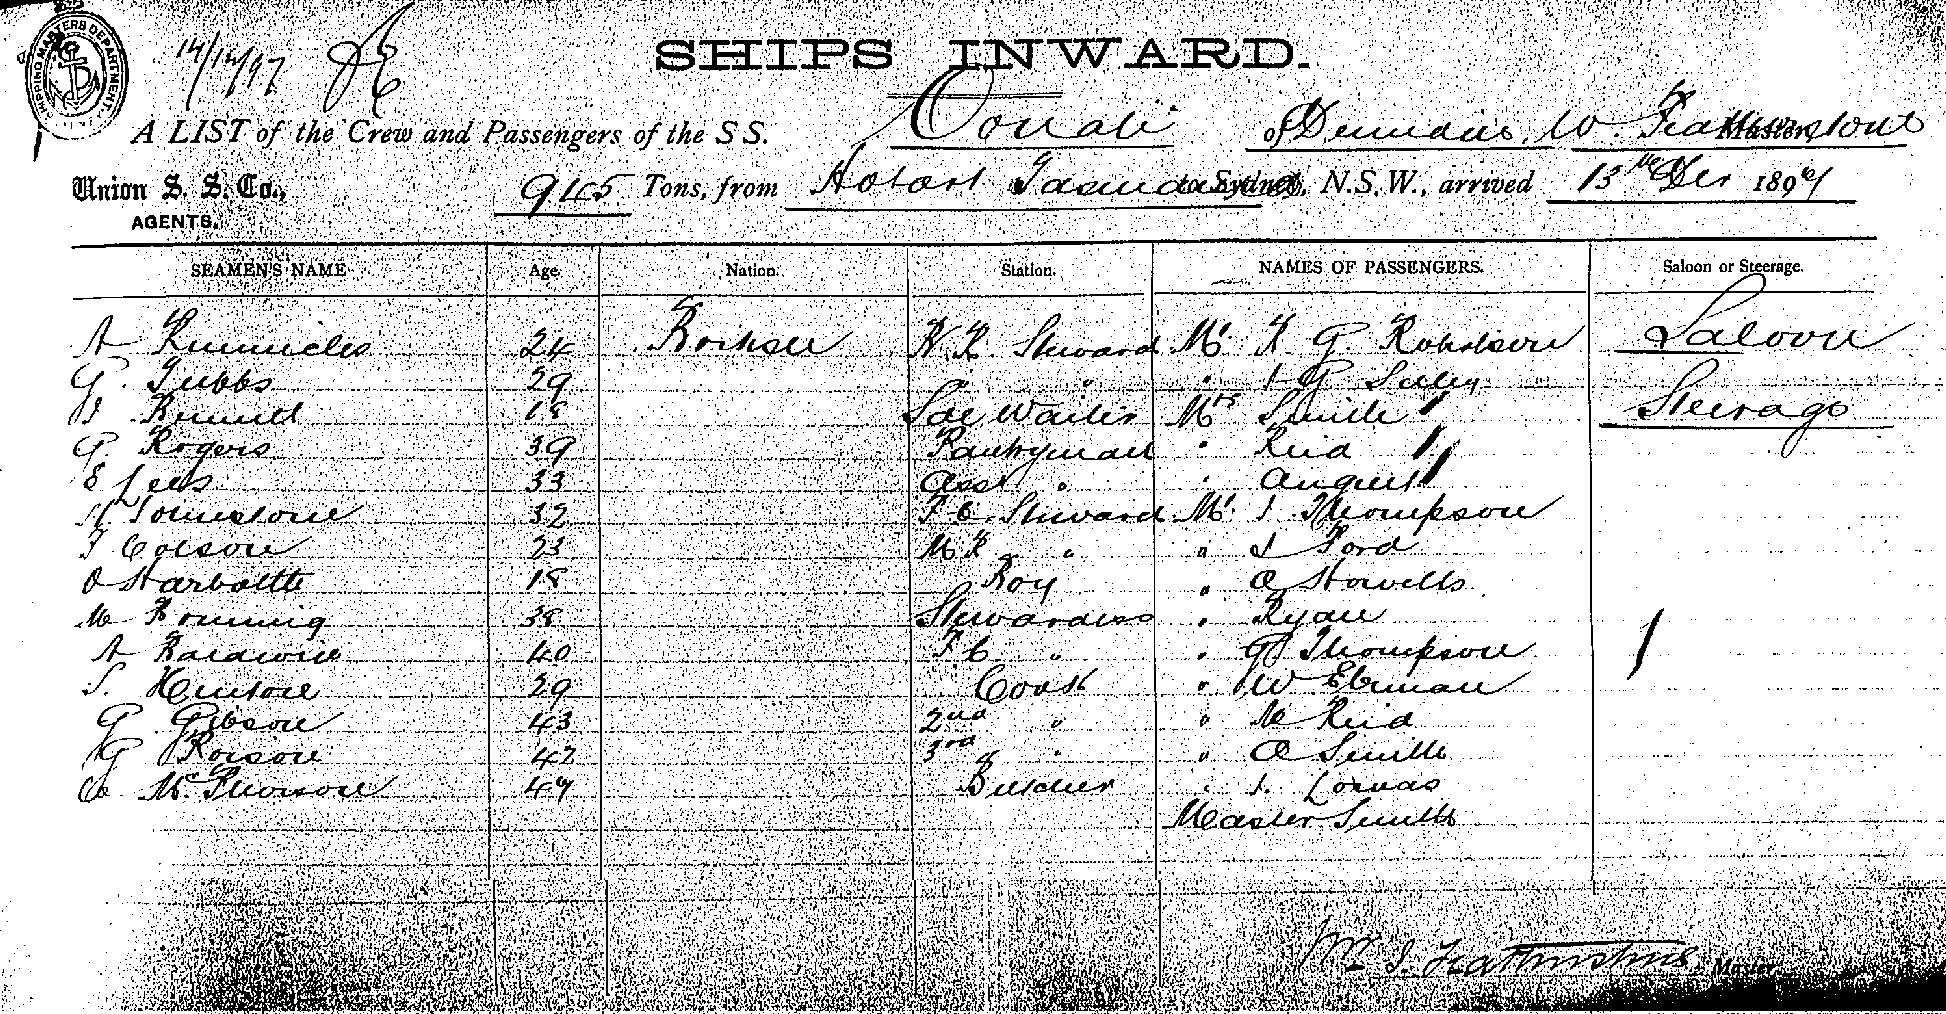 SHIPPING MASTERS DEPARTMENT
14/12/97
SHIPS INWARD.
A LIST of the Crew and Passengers of the SS. Oonah of Dunedin, W. Featherstone Master,
Union S. S. Co., 945 Tons, from Hobart Tasmania to Sydney, N.S.W., arrived 13th Dec 1897
AGENTS.
SEAMEN'S NAME Age Nation. Station. NAMES OF PASSENGERS. Saloon or Steerage.
A 24 Steward Mr G. Robertson Saloon
G. Tubbs 29 " "
18 Waiter Mrs Smith " Steerage
G. Rogers 39 Pantryman " Reid "
E Lees 33 Asst " " August "
Johnstone 32 F.C. Steward Mr J Thompson
Colson 23 " " J Ford
Harbottle 18 Boy " A Howells
M 38 Stewardess " Ryan
A Baldwin 40 F.C " " G Thompson
S. Hinton 29 Cook " W
G Gibson 43 2nd " " M Reid
G 42 3rd " " A Smith
47 Butcher " J. Lomas
Master Smith
Wm J. Featherstone Master